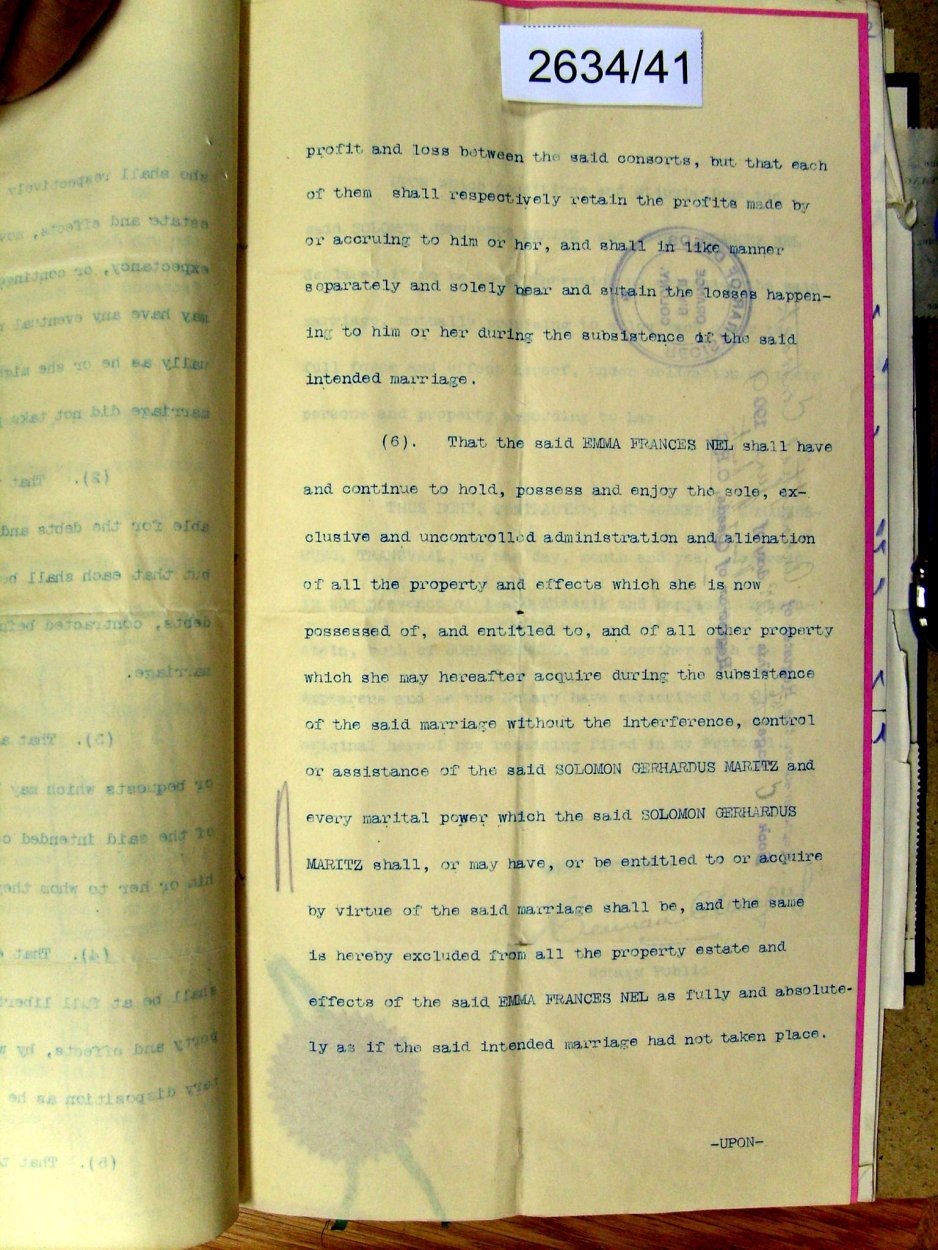 2634/41
profit and loss between the said consorts, but that each
of them shall respectively retain the profits made by
or accruing to him or her, and shall in like manner
separately and solely bear and sutain the losses happen-
ing to him or her during the subsistence of the said
intended marriage.
(6). That the said EMMA FRANCES NEL shall have
and continue to hold, possess and enjoy the sole, ex-
clusive and uncontrolled administration and alienation
of all the property and effects which she is now
possessed of, and entitled to, and of all other property
which she may hereafter acquire during the subsistence
of the said marriage without the interference, control
or assistance of the said SOLOMON GERHARDUS MARITZ and
every marital power which the said SOLOMON GERHARDUS
MARITZ shall, or may have, or be entitled to or acquire
by virtue of the said marriage shall be, and the same
is hereby excluded from all the property estate and
effects of the said EMMA FRANCES NEL as fully and absolute-
ly as if the said intended marriage had not taken place.
-UPON-